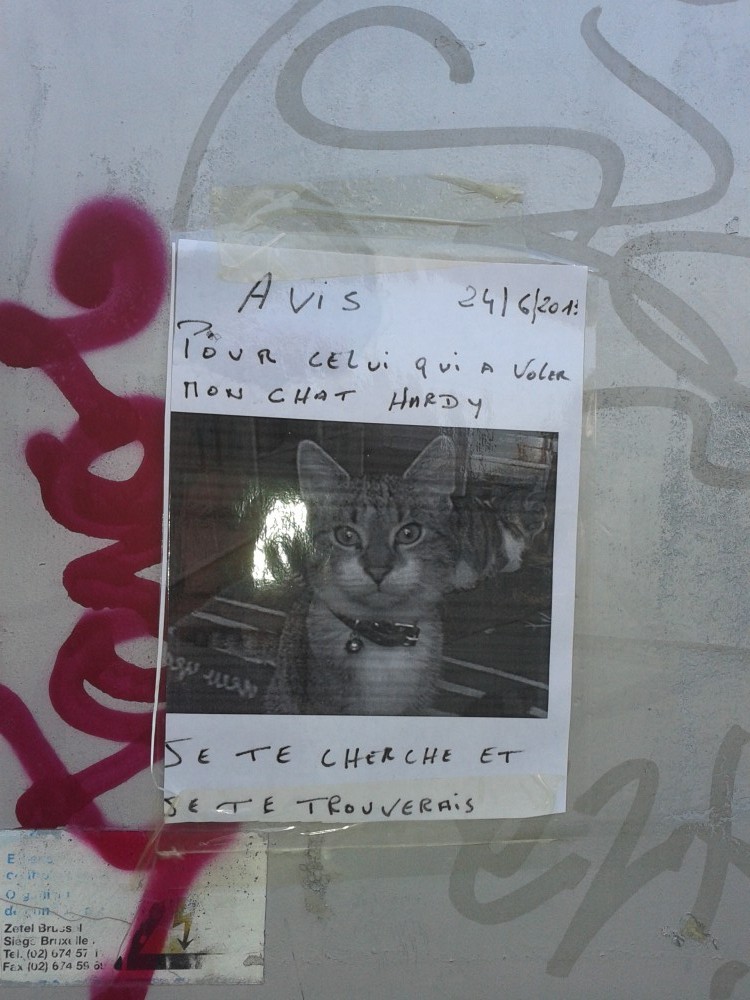 AVIS 24/6/2013
POUR CELUI QUI A VOLER
MON CHAT HARDY
JE TE CHERCHE ET
JE TE TROUVERAIS
Zetel
Siège
Tel. (02) 674 57
Fax (02) 674 59